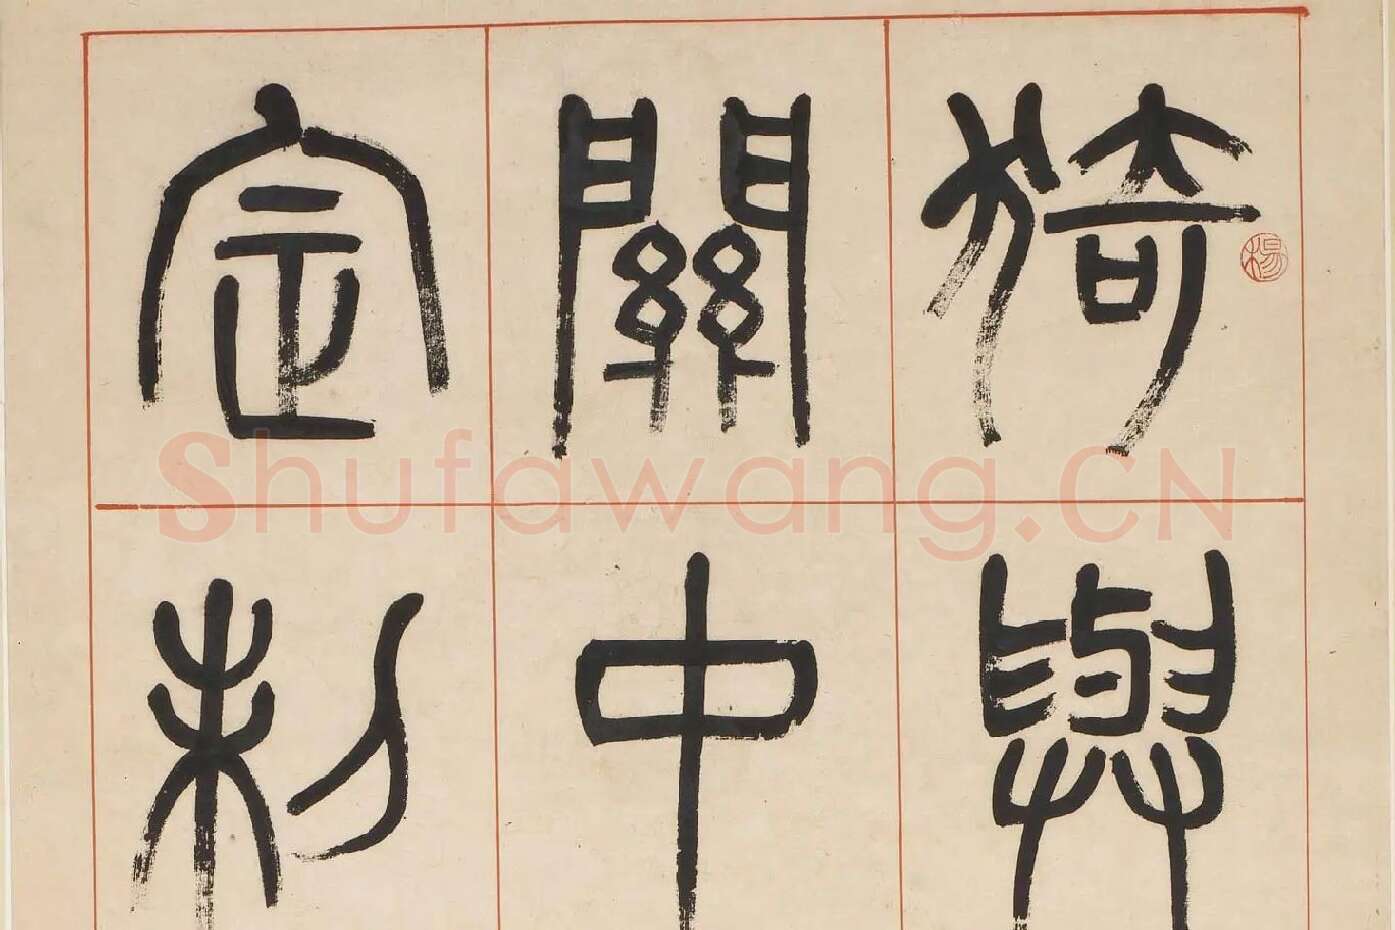 猗與
關中
定制
楊
Shufawang.CN